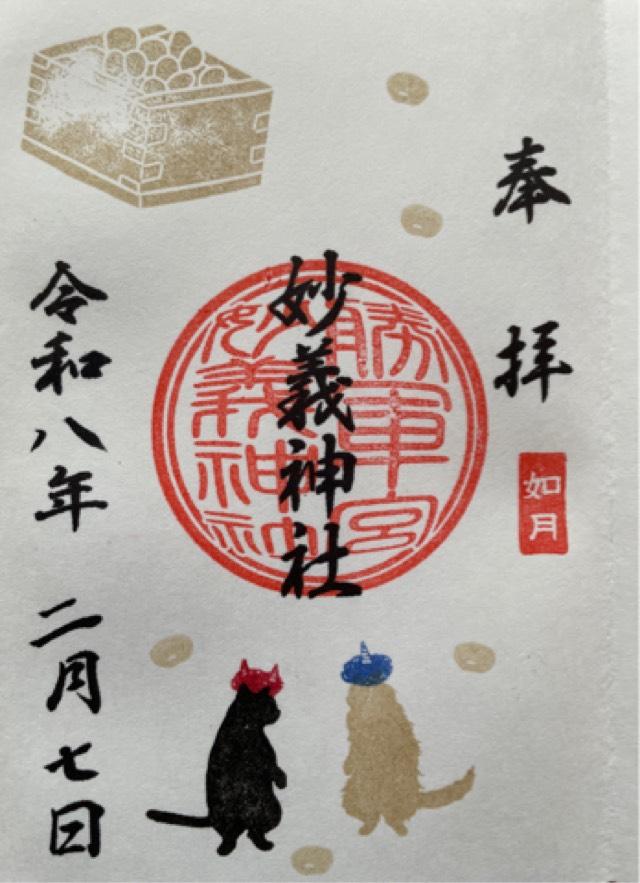 奉拝
如月
妙義神社
勝軍宮
妙義神社
令和八年 二月七日